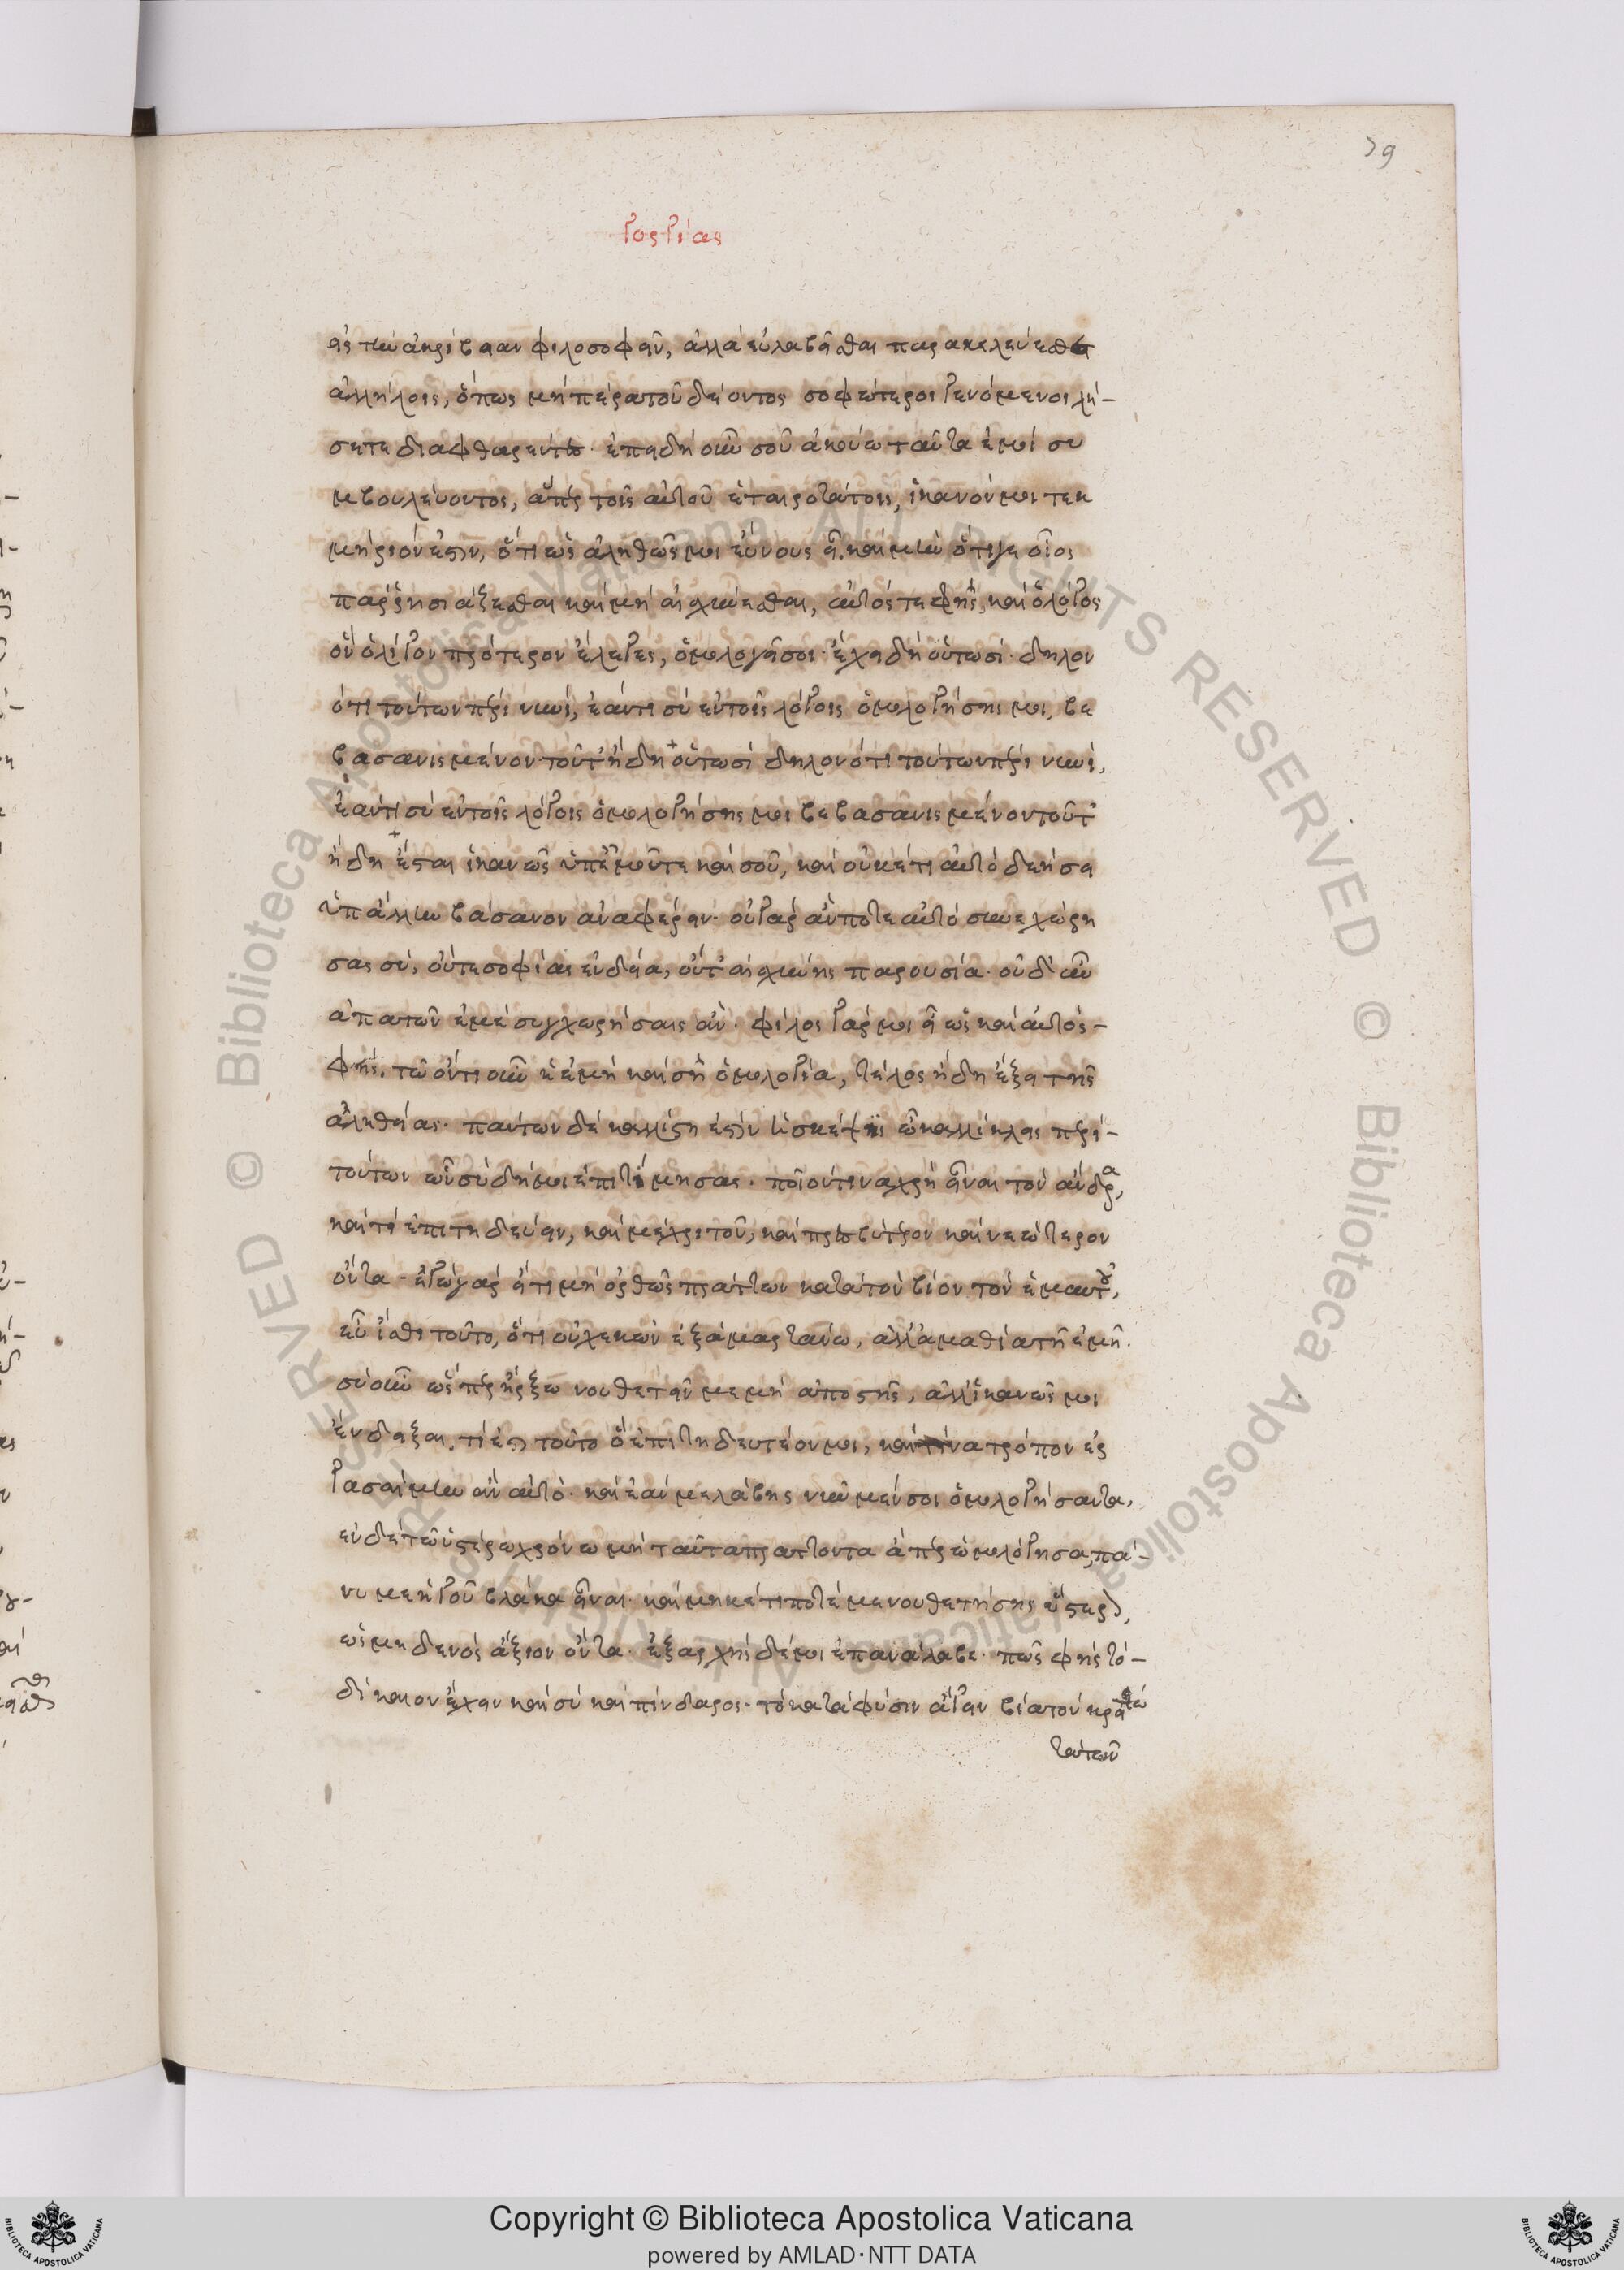 39
Γοργίας
εἰς τὴν ἀκρίβειαν φιλοσοφεῖν, ἀλλὰ εὐλαβεῖσθαι παρακελεύεσθαι
ἀλλήλοις, ὅπως μὴ πέρα τοῦ δέοντος σοφώτεροι γενόμενοι λή-
σετε διαφθαρέντες· ἐπειδὴ οὖν σοῦ ἀκούω ταῦτα ἐμοὶ συ
μβουλεύοντος, ἅπερ τοῖς αὑτοῦ ἑταιροτάτοις, ἱκανόν μοι τεκ
μήριόν ἐστιν, ὅτι ὡς ἀληθῶς μοι εὔνους εἶ. καὶ μὴν ὅτι γε οἷος
παρρησιάζεσθαι καὶ μὴ αἰσχύνεσθαι, αὐτός τε φὴς, καὶ ὁ λόγος
ὃν ὀλίγον πρότερον ἔλεγες, ὁμολογεῖ σοι· ἔχει δὴ οὑτωσί· δηλον
ότι τούτων πέρι νυνί, ἐάν τι σὺ ἐν τοῖς λόγοις ὁμολογήσῃς μοι, βε
βασανισμένον τοῦτ' ἤδη + οὑτωσὶ δηλονότι τούτων πέρι νυνί,
ἐάν τι σὺ ἐν τοῖς λόγοις ὁμολογήσῃς μοι βεβασανισμένον τοῦτ'
ἤδη + ἔσται ἱκανῶς ὑπ' ἐμοῦ τε καὶ σοῦ, καὶ οὐκέτι αὐτὸ δεήσει
ἐπ' ἄλλην βάσανον ἀναφέρειν· οὐ γὰρ ἄν ποτε αὐτὸ συνεχώρη
σας σύ, οὔτε σοφίας ἐνδείᾳ, οὔτ' αἰσχύνης παρουσίᾳ· οὐδ' αὖ
ἀπατῶν ἐμὲ συγχωρήσαις ἄν· φίλος γάρ μοι εἶ ὡς καὶ αὐτὸς-
φῄς. τῷ ὄντι οὖν ἡ ἐμὴ καὶ σὴ ὁμολογία, τέλος ἤδη ἕξει τῆς
ἀληθείας· πάντων δὲ καλλίστη ἐστὶν ἡ σκέψις ὦ καλλίκλεις περὶ-
τούτων ὧν σὺ δή μοι ἐπετίμησας· ποῖόν τινα χρὴ εἶναι τὸν ἄνδρα,
καὶ τί ἐπιτηδεύειν, καὶ μέχρι τοῦ, καὶ πρεσβύτερον καὶ νεώτερον
ὄντα· ἐγὼ γὰρ εἴ τι μὴ ὀρθῶς πράττων κατὰ τὸν βίον τὸν ἐμαυτοῦ,
εὖ ἴσθι τοῦτο, ὅτι οὐχ ἑκὼν ἐξαμαρτάνω, ἀλλ' ἀμαθίᾳ τῇ ἐμῇ.
σὺ οὖν ὥσπερ ἤρξω νουθετεῖν με μὴ ἀποστῇς, ἀλλ' ἱκανῶς μοι
ἔνδειξαι, τί ἐστι τοῦτο ὃ ἐπιτηδευτέον μοι, καὶ τίνα τρόπον ἐρ
γασαίμην ἂν αὐτό· καὶ ἐάν με λάβῃς νῦν μέν σοι ὁμολογήσαντα,
ἐν δὲ τῷ ὑστέρῳ χρόνῳ μὴ ταῦτα πράττοντα ἅπερ ὡμολόγησα, πά-
νυ με ἡγοῦ βλᾶκα εἶναι· καὶ μηκέτι ποτέ με νουθετήσῃς ὕστερον,
ὡς μηδενὸς ἄξιον ὄντα· ἐξ ἀρχῆς δέ μοι ἐπανάλαβε· πῶς φὴς τὸ-
δίκαιον ἔχειν καὶ σὺ καὶ πίνδαρος· τὸ κατὰ φύσιν ἄγειν βίᾳ τὸν κρείττω
τὰ τῶν